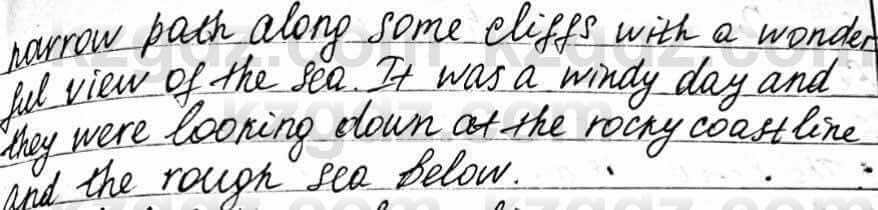 narrow path along some cliffs with a wonder
ful view of the sea. It was a windy day and
they were looking down at the rocky coastline
and the rough sea below.